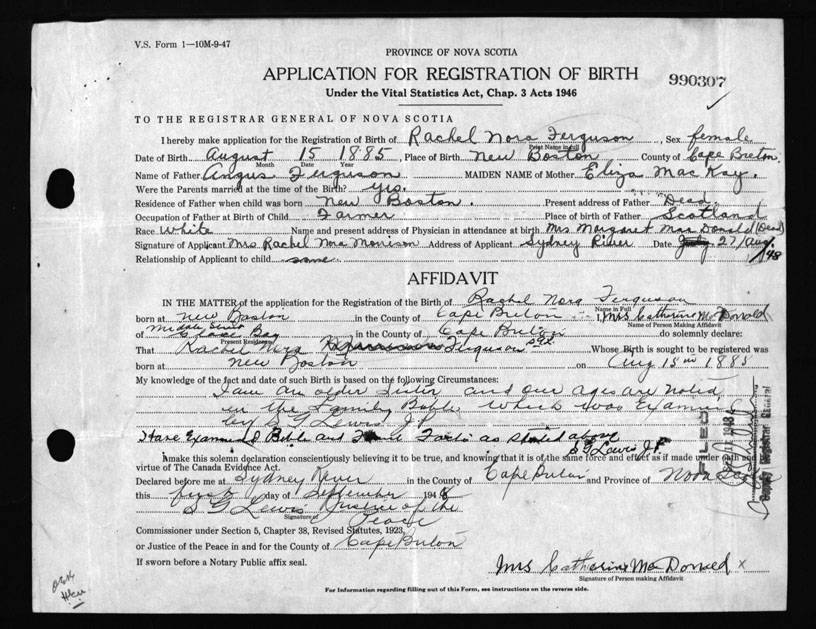 V.S. Form 1—10M-9-47
PROVINCE OF NOVA SCOTIA
APPLICATION FOR REGISTRATION OF BIRTH
990307
Under the Vital Statistics Act, Chap. 3 Acts 1946
TO THE REGISTRAR GENERAL OF NOVA SCOTIA
I hereby make application for the Registration of Birth of Rachel Nora Ferguson, Sex female
Print Name in full
Date of Birth August 15 1885, Place of Birth New Boston County of Cape Breton.
Month Date Year
Name of Father Angus Ferguson MAIDEN NAME of Mother Eliza Mac Kay.
Were the Parents married at the time of the Birth? yes.
Residence of Father when child was born New Boston. Present address of Father Dead.
Occupation of Father at Birth of Child Farmer Place of birth of Father Scotland
Race White Name and present address of Physician in attendance at birth Mrs Margaret Mac Donald (Dead)
Signature of Applicant Mrs Rachel Nora Morrison Address of Applicant Sydney River Date July 27/Aug. /48
Relationship of Applicant to child same
AFFIDAVIT
IN THE MATTER of the application for the Registration of the Birth of Rachel Nora Ferguson
Name in Full
born at New Boston in the County of Cape Breton I, Mrs Catharine McDonald
Name of Person Making Affidavit
of Glace Bay in the County of Cape Breton do solemnly declare:
Present Residence
That Rachel Nora Ferguson Whose Birth is sought to be registered was
born at New Boston on Aug 15th 1885
My knowledge of the fact and date of such Birth is based on the following Circumstances:
I am an older Sister and our ages are noted
in the Family Bible which was Examined
by S G Lewis J.P.
Have Examined Bible and Facts as stated above
S G Lewis J.P.
I make this solemn declaration conscientiously believing it to be true, and knowing that it is of the same force and effect as if made under oath and
virtue of The Canada Evidence Act.
Declared before me at Sydney River in the County of Cape Breton and Province of Nova Scotia
this first day of September 1948
S G Lewis Justice of the
Signature of
Peace
Commissioner under Section 5, Chapter 38, Revised Statutes, 1923,
or Justice of the Peace in and for the County of Cape Breton
If sworn before a Notary Public affix seal.
Mrs Catharine MacDonald x
Signature of Person making Affidavit
For Information regarding filling out of this Form, see instructions on the reverse side.
FILED